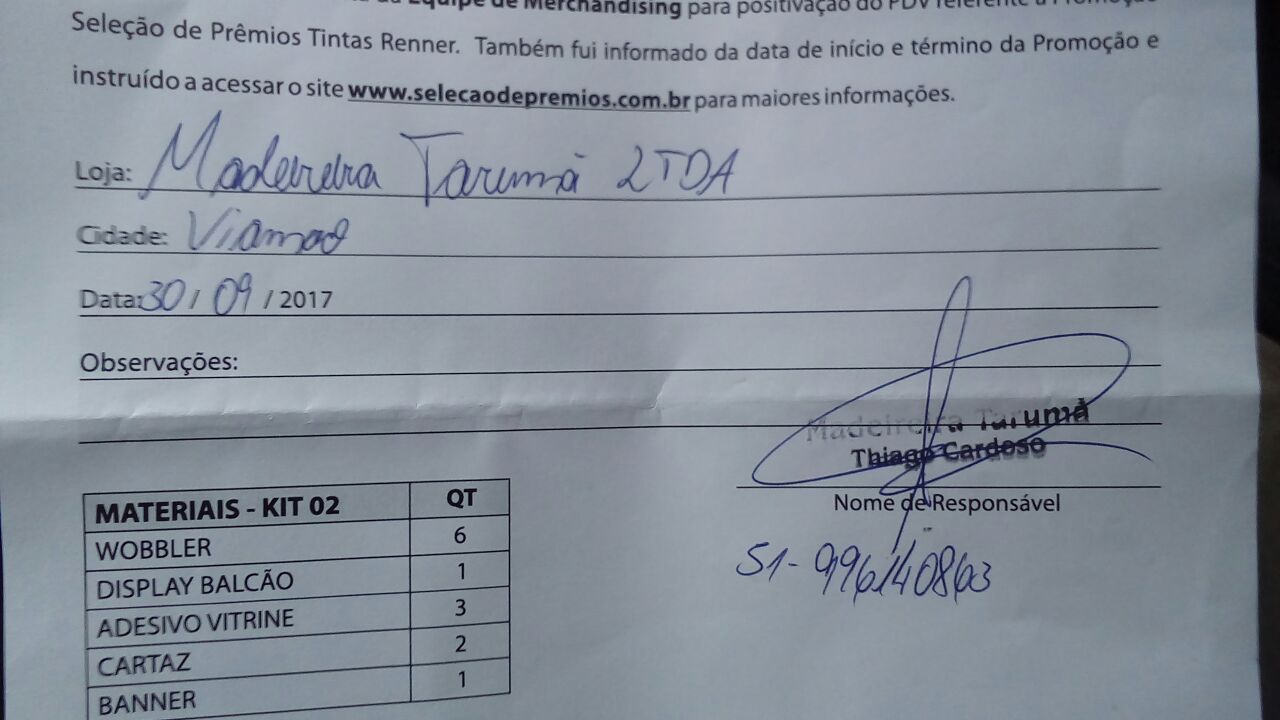 da Equipe de Merchandising para positivação do PDV referente a Promoção
Seleção de Prêmios Tintas Renner. Também fui informado da data de início e término da Promoção e
instruído a acessar o site www.selecaodepremios.com.br para maiores informações.
Loja: Madeireira Tarumã LTDA
Cidade: Viamao
Data: 30 / 09 / 2017
Observações:
Madeireira Tarumã
Thiago Cardoso
Nome de Responsável
51-996140863
MATERIAIS - KIT 02 QT
WOBBLER 6
DISPLAY BALCÃO 1
ADESIVO VITRINE 3
CARTAZ 2
BANNER 1